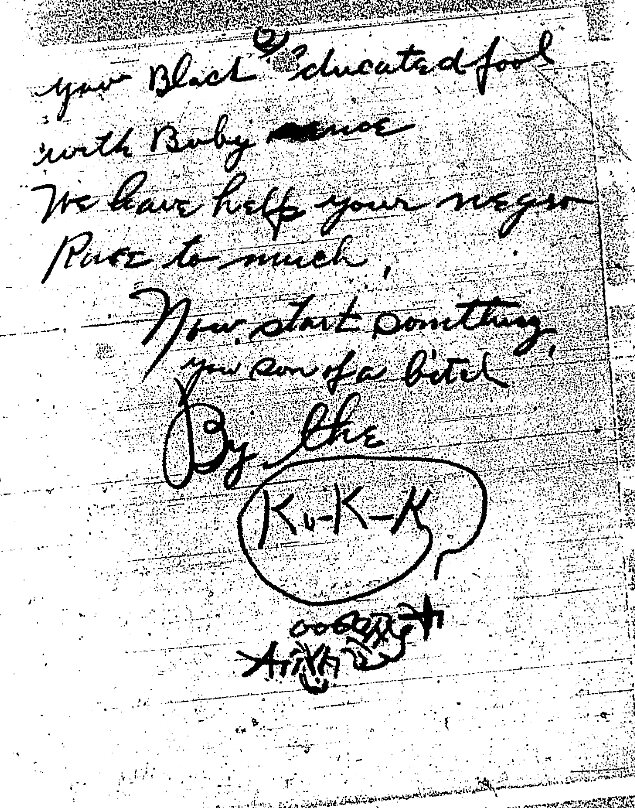 (2)
you Black educated fool
with Buby
We have help your negro
Race to much,
Now start something,
you son of a bitch
By the
Ku-K-K